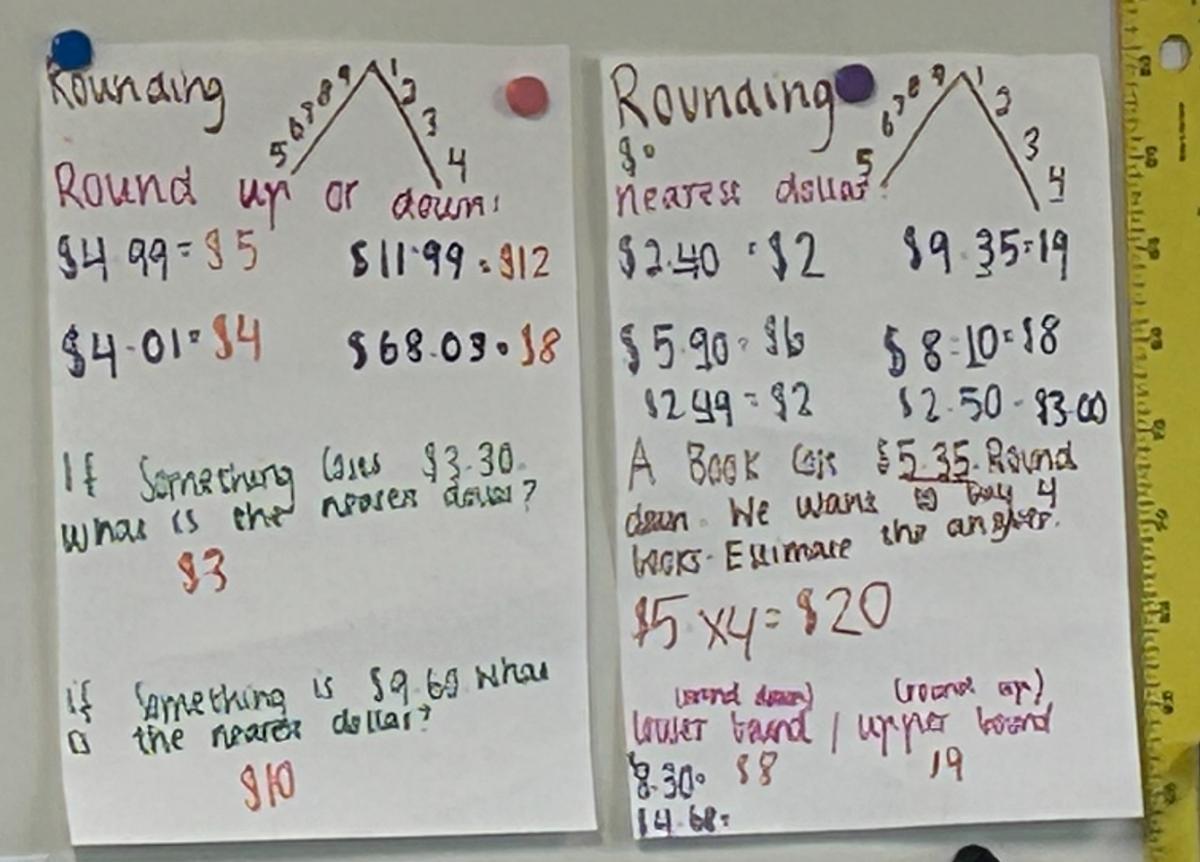 Rounding
9 1
8 2
7 3
6
5 4
Round up or down:
$4.99 = $5 $11.99 = $12
$4.01 = $4 $68.03 = $8
If Something Costs $3.30.
What is the nearest dollar?
$3
if Something is $9.60 What
the nearest dollar?
$10
Rounding
9 1
8 2
7 3
6
5 4
$
nearest dollar:
$2.40 = $2 $9.35 = 19
$5.90 = $6 $8.10 = $8
$2.49 = $2 $2.50 - $3.00
A Book $5.35. Round
down. We want to buy 4
books. Estimate the answer.
$5 x4 = $20
(round down) (round up)
lower bound / upper bound
8.30 = $8 19
14.68 =